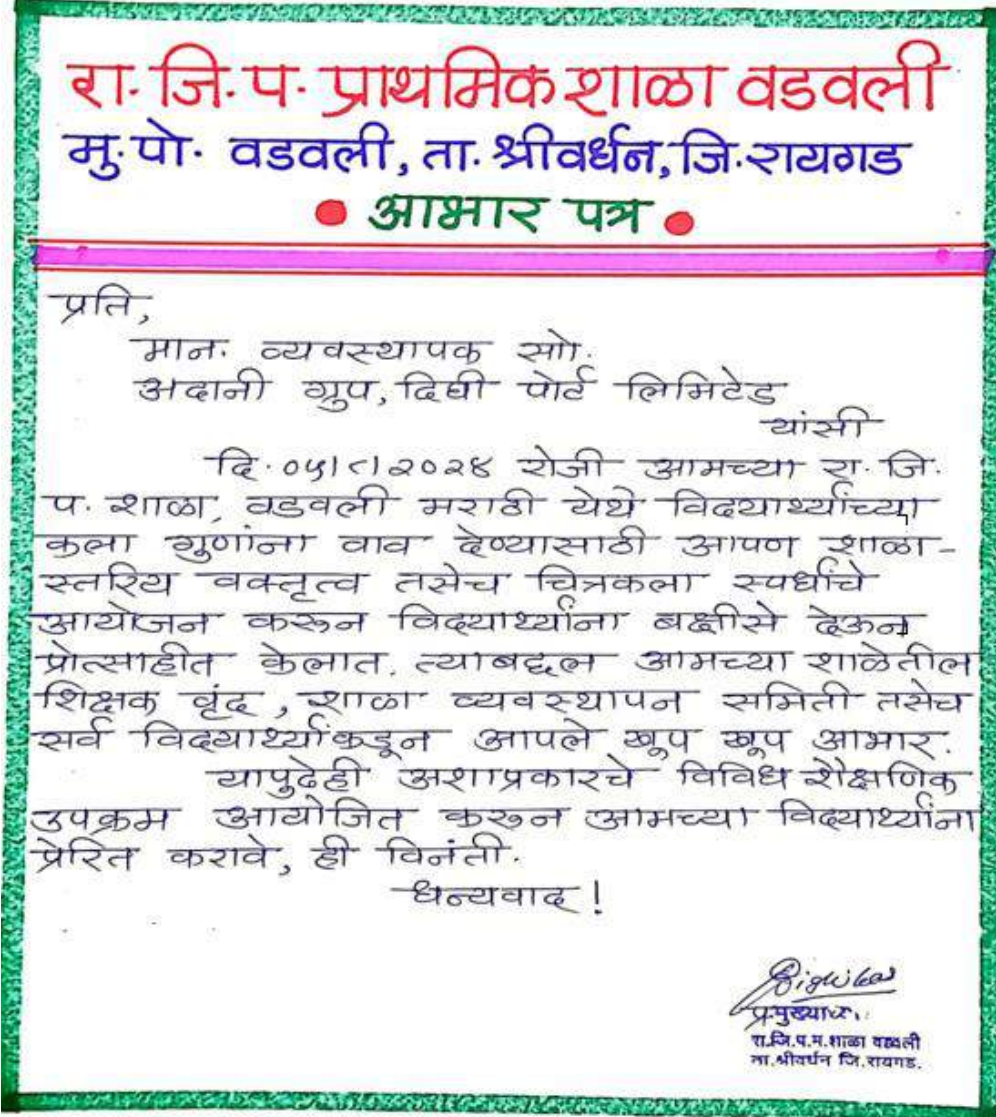 रा. जि. प. प्राथमिक शाळा वडवली
मु. पो. वडवली, ता. श्रीवर्धन, जि. रायगड
• आभार पत्र •
प्रति,
मान. व्यवस्थापक सो.
अदानी ग्रुप, दिघी पोर्ट लिमिटेड
यांसी
दि. ०५/८/२०२४ रोजी आमच्या रा. जि.
प. शाळा, वडवली मराठी येथे विदयार्थ्यांच्या
कला गुणांना वाव देण्यासाठी आपण शाळा-
स्तरिय वक्तृत्व तसेच चित्रकला स्पर्धांचे
आयोजन करून विदयार्थ्यांना बक्षीसे देऊन
प्रोत्साहीत केलात. त्याबद्दल आमच्या शाळेतील
शिक्षक वृंद, शाळा व्यवस्थापन समिती तसेच
सर्व विदयार्थ्यांकडून आपले खूप खूप आभार.
यापुढेही अशाप्रकारचे विविध शैक्षणिक
उपक्रम आयोजित करून आमच्या विदयार्थ्यांना
प्रेरित करावे, ही विनंती.
धन्यवाद !
रा.जि.प.म.शाळा वडवली
ता.श्रीवर्धन जि.रायगड.